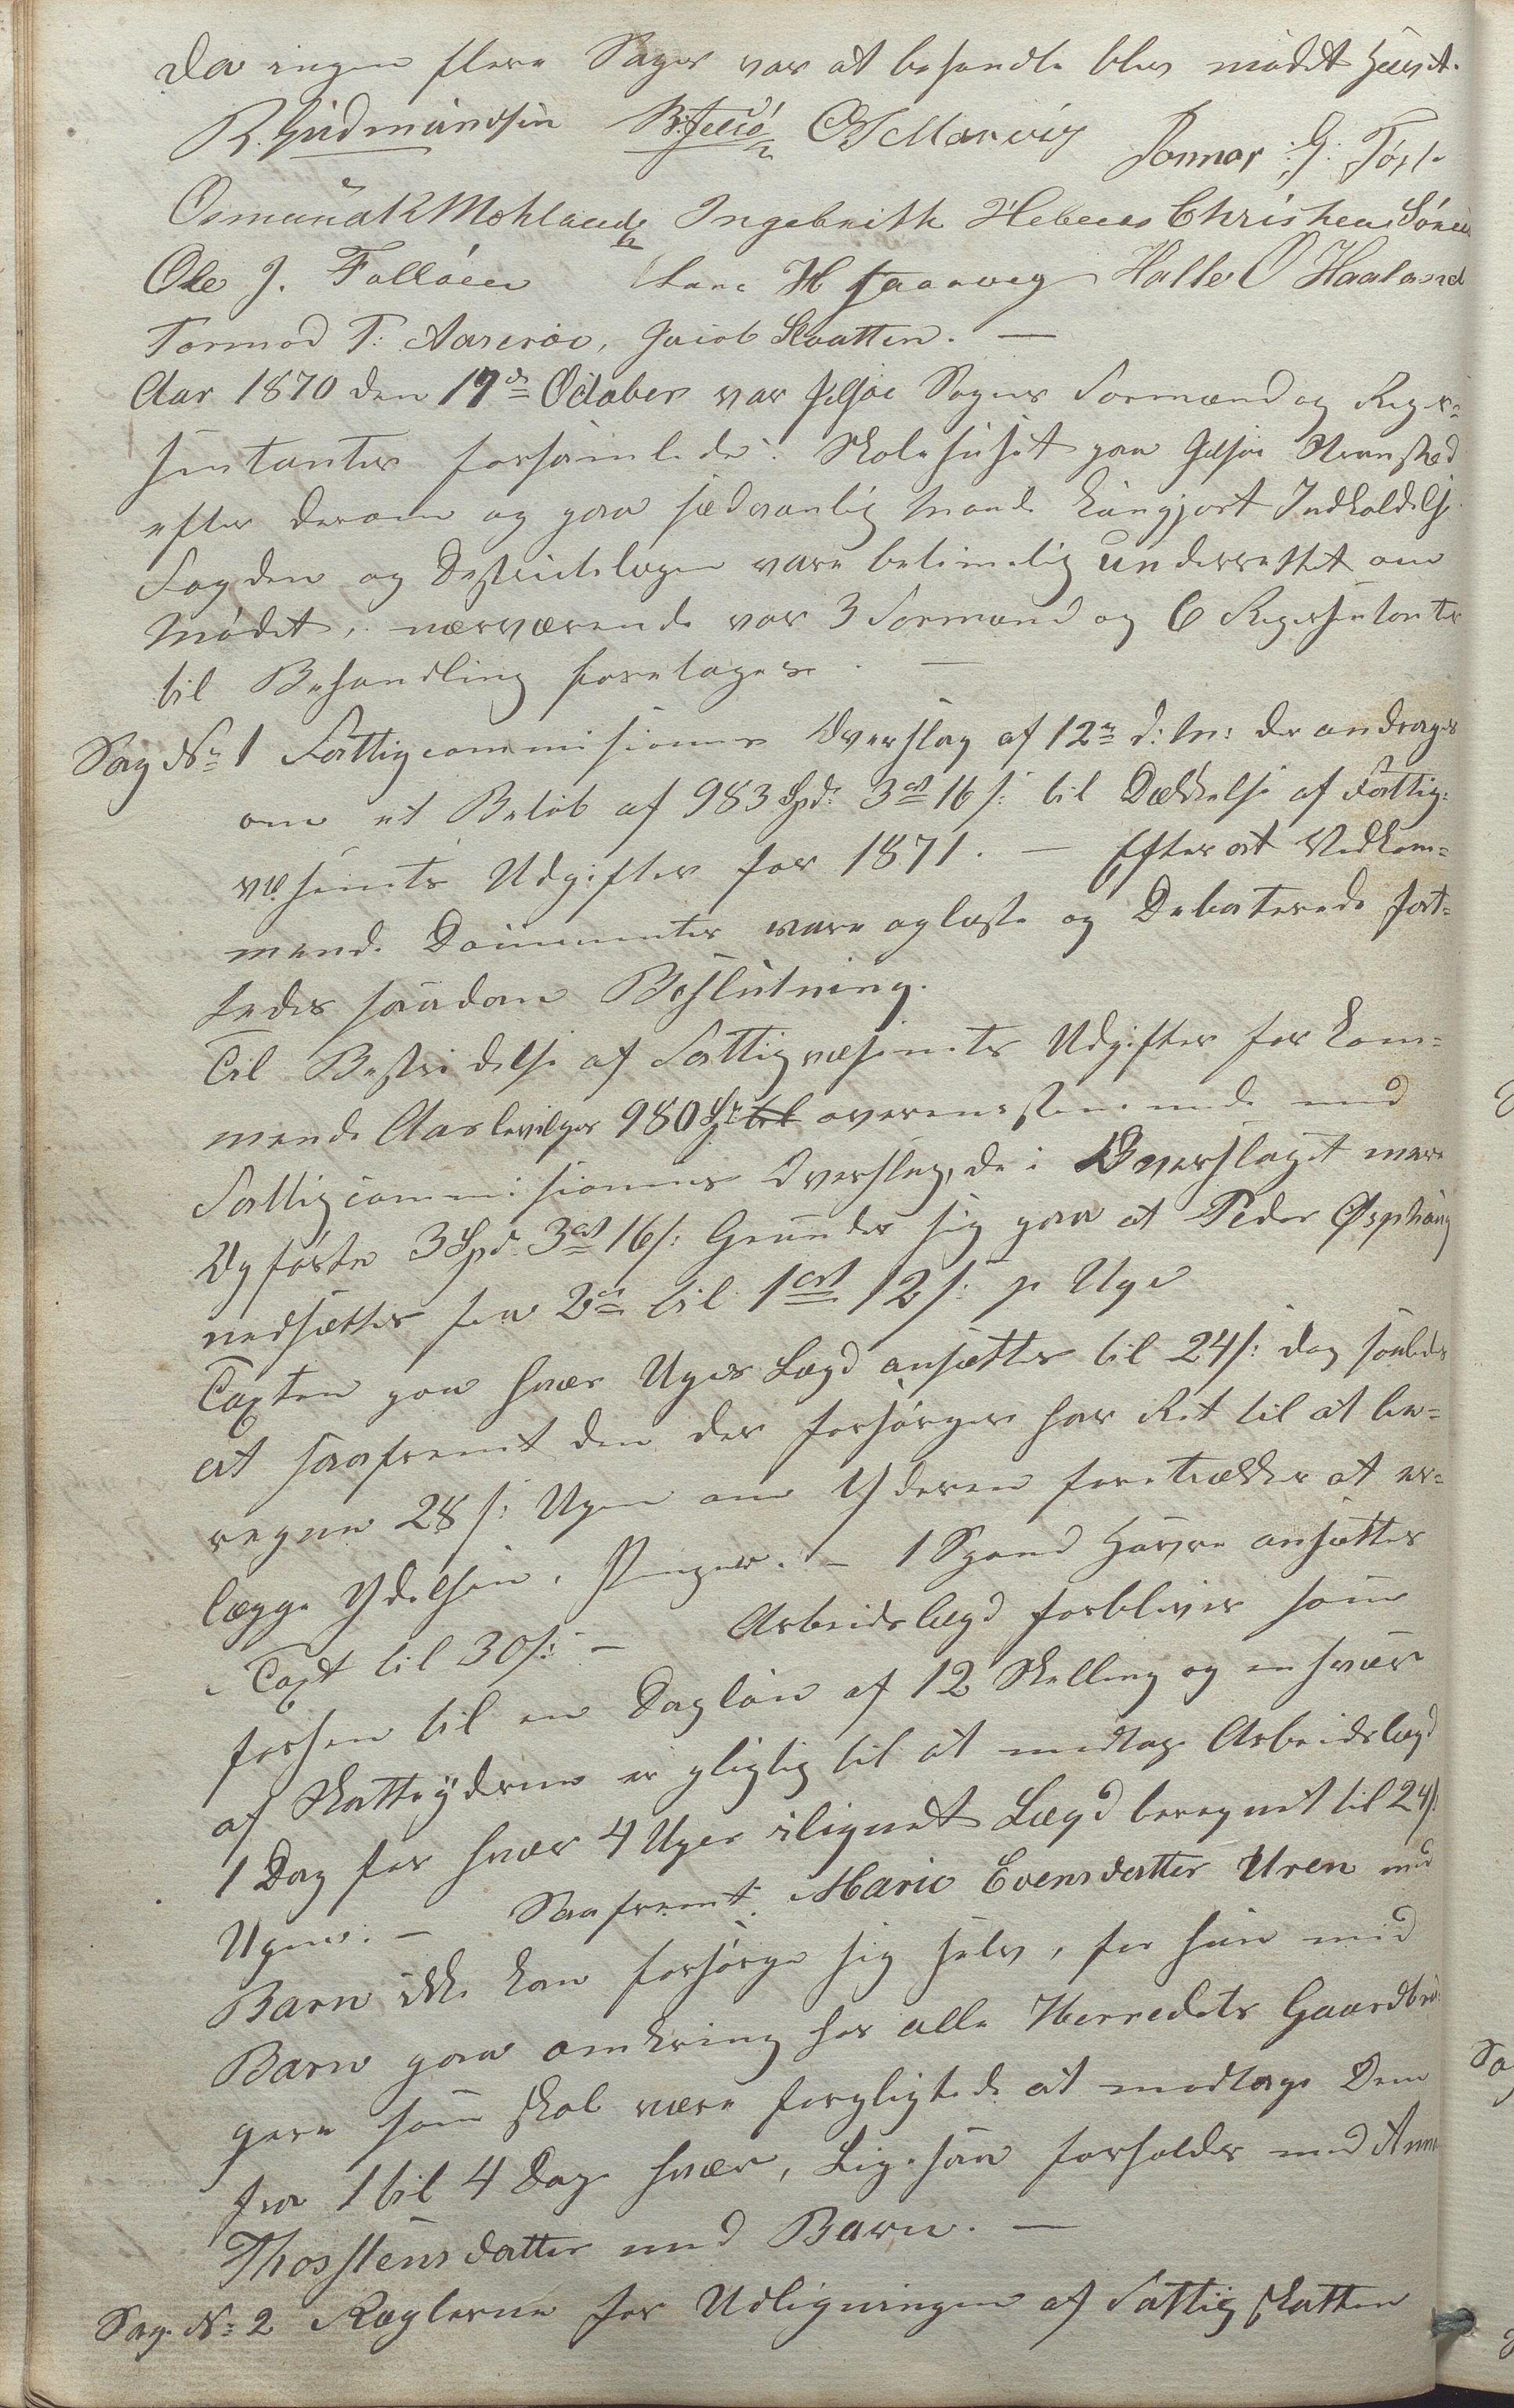 Da ingen flere Sager var at behandle blev mødet hævet.
R. Gudmundsen B. Jelsø O T Marvig Gonnar G: Tøst
Osmund K Mæhlands Ingebrith Hebnes Christen Sønen
Ole J. Folløen Lars H Saarveg Halle O Haaland
Tormod T: Aarsvoe, Jacob Slaatten. —
Aar 1870 den 17de October var Jelsøe Sogns Formænd og Repre-
sentanter forsamlede i Skolehuset paa Jelsøe Strandsted
efter derom og paa sædvanlig Maade kungjort Indkaldelse.
Fogden og Destrictslægen vare betimelig underrettet om
Mødet, nærværende var 3 Formænd og 6 Represetanter
til Behandling foretoges. —
Sag No 1 Fattigcommisionens Overslag af 12te d: M: der andrages
om et Beløb af 983 Spd: 3ort 16 s: til Dækkelse af Fattig-
væsenets Udgifter for 1871. — Efter at Vedkom-
mende Documenter vare oplæste og Debaterede fat-
tedes saadan Beslutning.
Til Bestridelse af Fattigvæsenets Udgifter for kom-
mende Aar bevilges 980 Spd til overensstemmende med
Fattigcommisionens Overslag, de i Overslaget mere
Opførte 3 Spd 3ort 16 s: Grunder sig paa at Peder Øsphaug
nedsættes fra 2ort til 1ort 12 s: p Uge
Taxten paa hver Uges Lægd ansættes til 24 s: dog saaledes
at saafremt den der forsørges har Ret til at be-
regne 28 s: Ugen om Yderen foretrækker at er-
lægge Ydelsen i Penger. — 1 Spand Havre ansættes
i Taxt til 30 s: — Arbeidslægd forbliver som
forhen til en Dagløn af 12 Skelling og en hver
af Skatteyderne er pligtig til at modtage Arbeidslægd
1 Dag for hver 4 Uger ilignet Lægd beregnet til 24 s:
Ugen. — Saafremt Marie Evensdatter Uren med
Barn ikke kan forsørge sig selv, faar hun med
Barn gaa omkring hos alle Herredets Gaardbru-
gere som skal være forpligtede at modtage Dem
fra 1 til 4 Dage hver, Ligesaa forholdes med Anna
Thorstensdatter med Barn. —
Sag No 2 Reglerne for Udligningen af Fattigskatten